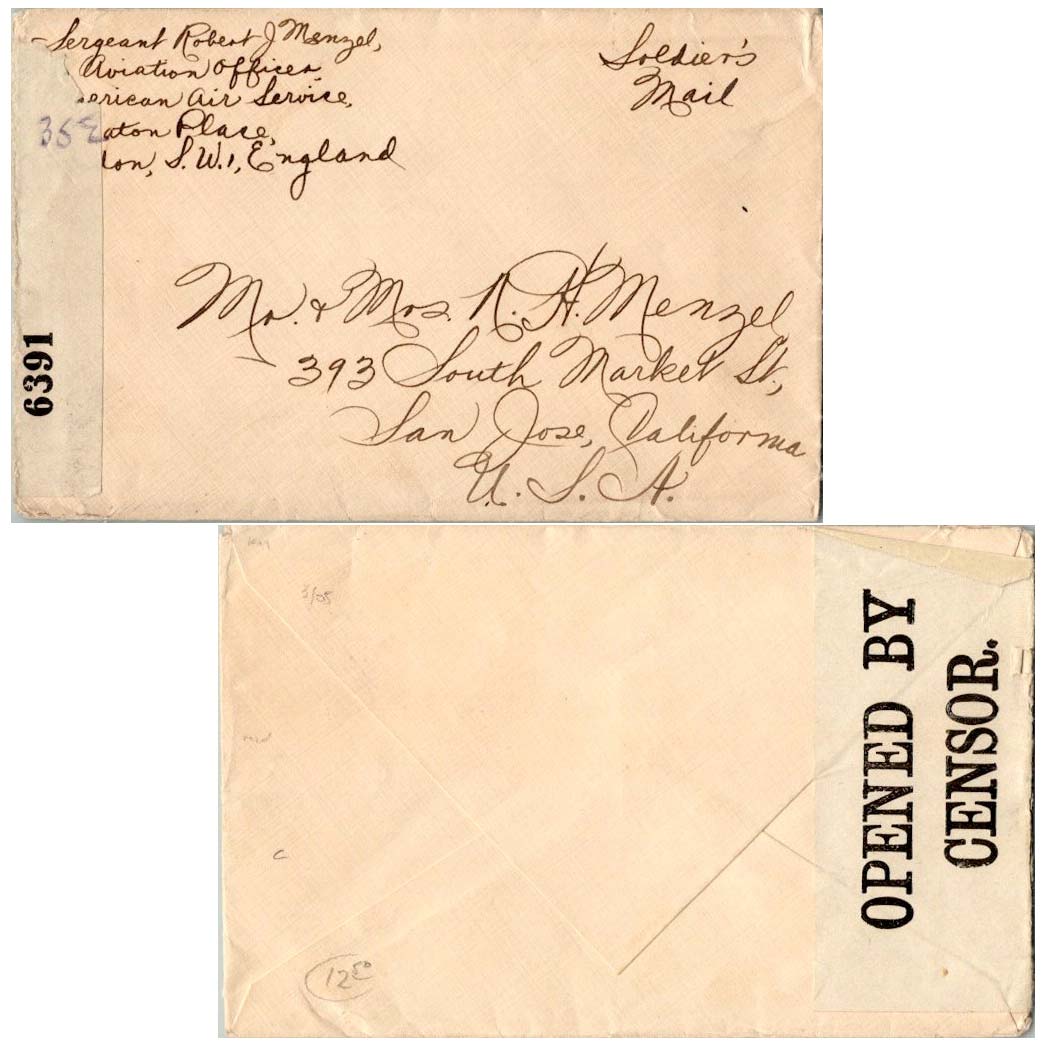 Sergeant Robert J Menzel,
Aviation Officer,
erican Air Service,
35 E aton Place,
don, S.W.1, England
Soldier's
Mail
6391
Mr. & Mrs. R. H. Menzel
393 South Market St.,
San Jose, California
U. S. A.
3/05
c
12 50
OPENED BY
CENSOR.